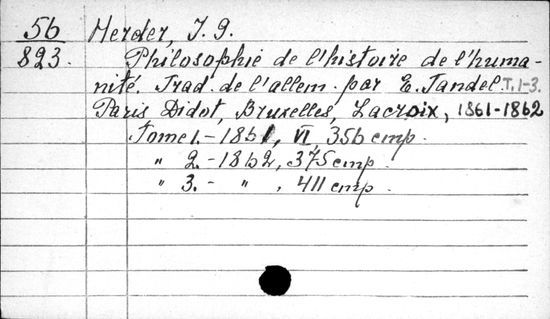 56 Herder, I. G.
823. Philosophie de l'histoire de l'huma-
nité. Trad. de l'allem. par E. Tandel. T. 1-3.
Paris Didot, Bruxelles, Lacroix, 1861-1862
Tome 1. - 1861, VI, 356 стр.
" 2. - 1862, 375 стр.
" 3. - " , 411 стр.